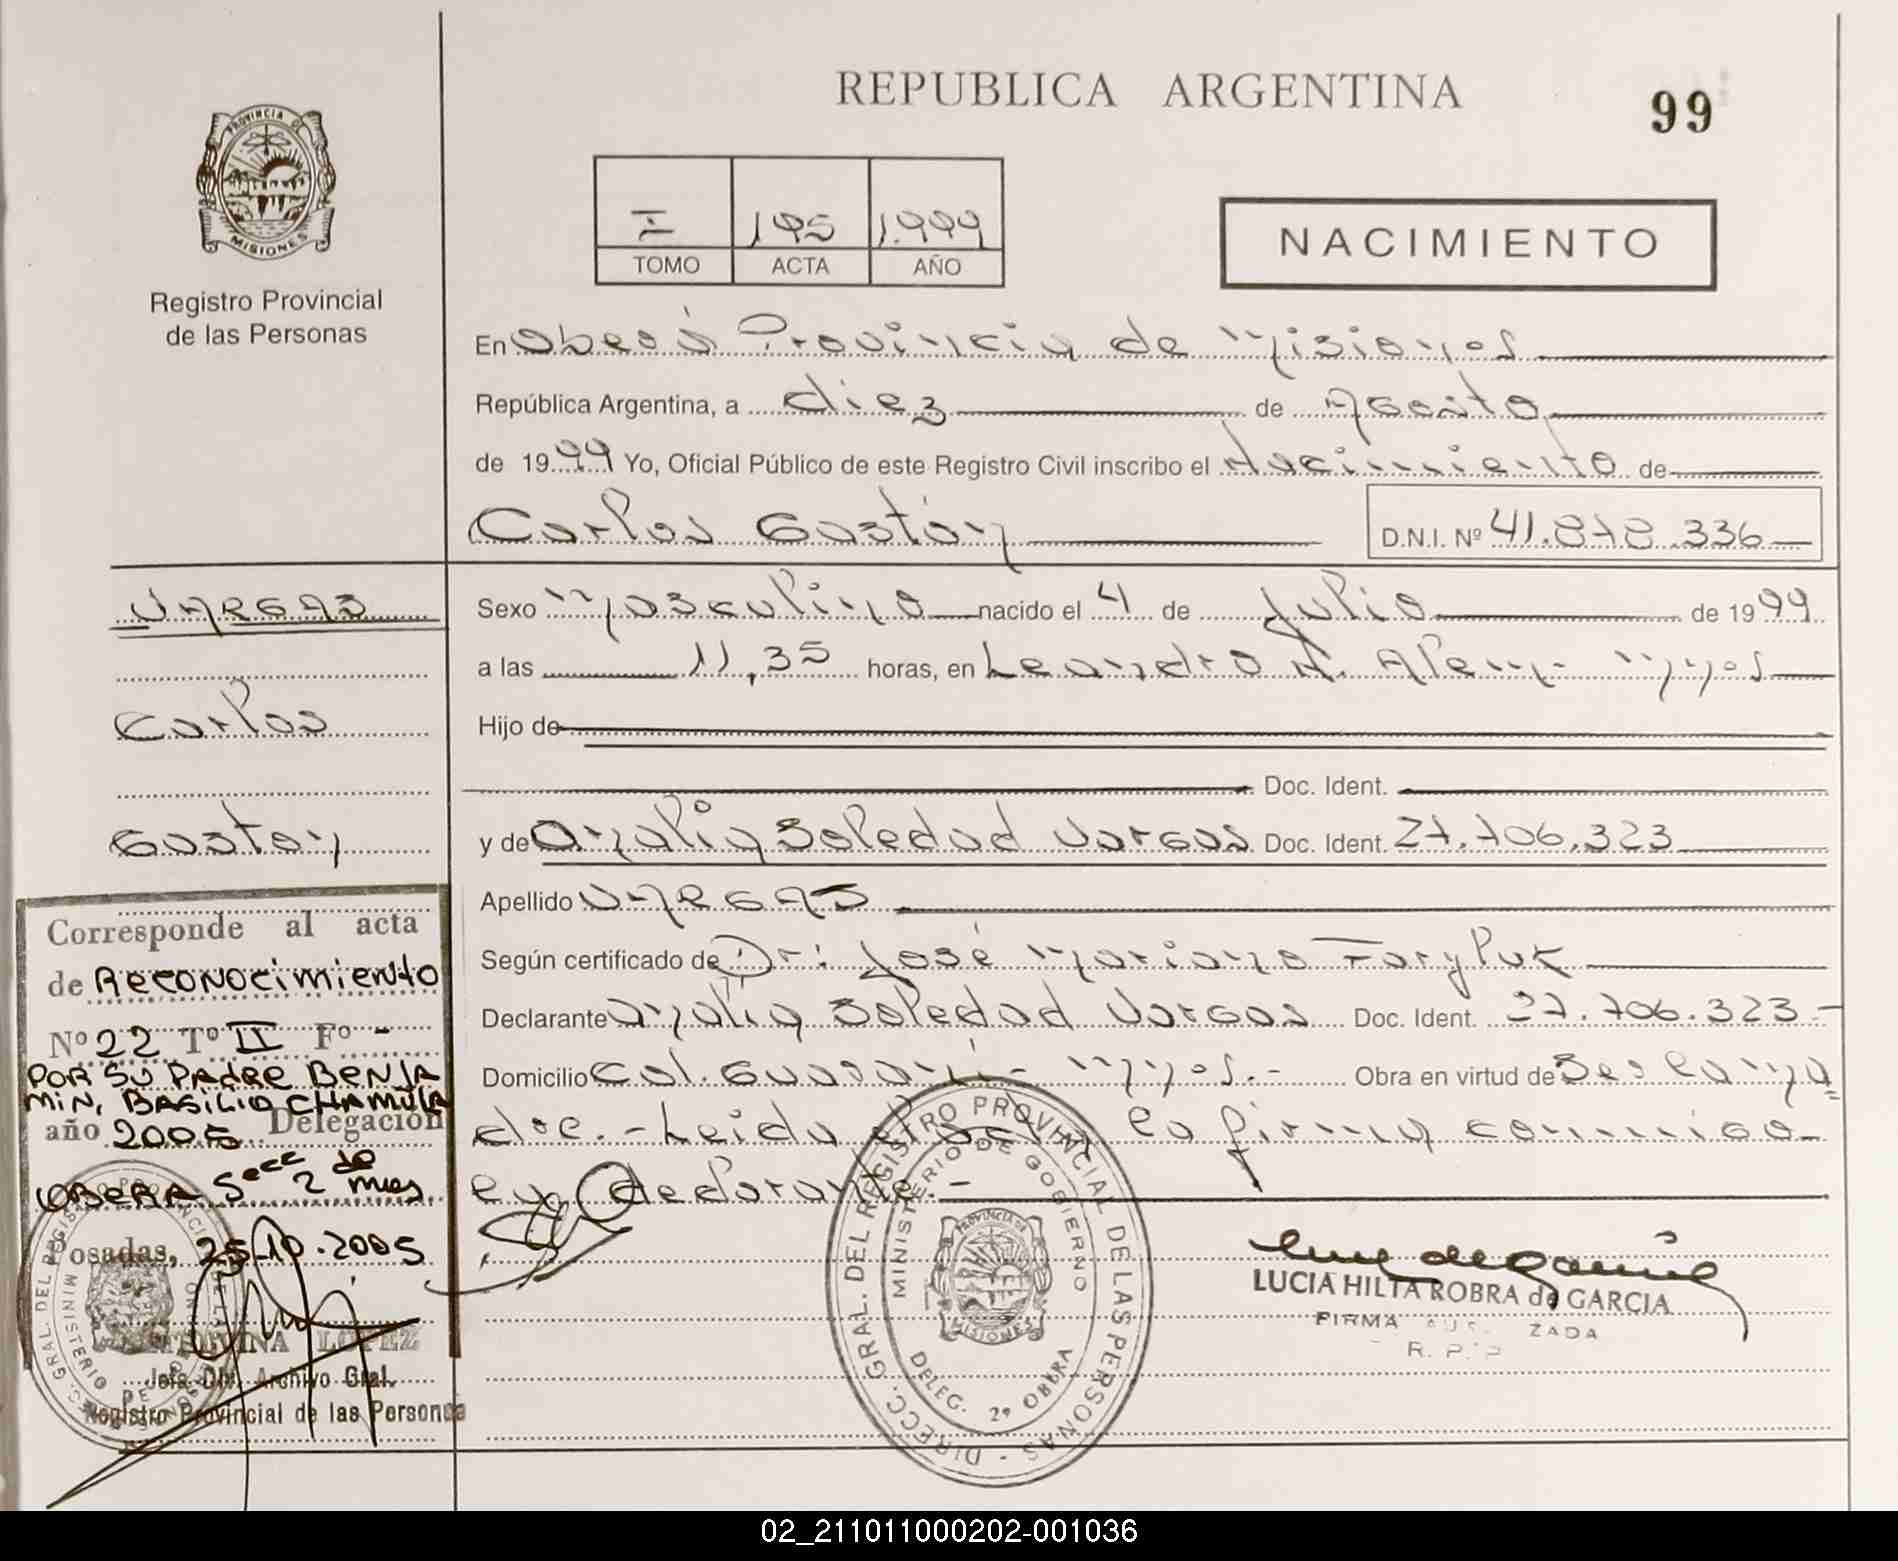 REPUBLICA ARGENTINA
99
PROVINCIA DE
MISIONES
Registro Provincial
de las Personas
I 195 1.999
TOMO ACTA AÑO
NACIMIENTO
En Oberá Provincia de Misiones
República Argentina, a diez de Agosto
de 1999 Yo, Oficial Público de este Registro Civil inscribo el Nacimiento de
Carlos Gastón
D.N.I. Nº 41.878.336
VARGAS
Carlos
Gastón
Sexo Masculino nacido el 4 de Julio de 1999
a las 11,35 horas, en Leandro N. Alem - Mnes
Hijo de
Doc. Ident.
y de Analia Soledad Vargas Doc. Ident. 27.706.323
Apellido VARGAS
Según certificado de Dr: José Mariano Forypluk
Declarante Analia Soledad Vargas Doc. Ident. 27.706.323.-
Domicilio Col. Guaraní - Mnes.- Obra en virtud de ser la ma
dre.- Leida el acta la firma conmigo
la declarante.-
Corresponde al acta
de Reconocimiento
Nº 22 Tº II Fº -
POR SU PADRE BENJA
MIN, BASILIO CHAMULA
año 2005 Delegación
OBERA Secc 2da Mnes
osadas, 25-10-2005
LOPEZ
Jefa Div. Archivo Gral.
Registro Provincial de las Personas
DIRECC. GRAL. DEL REGISTRO PROVINCIAL DE LAS PERSONAS
MINISTERIO DE GOBIERNO
PROVINCIA DE
MISIONES
DELEG. 2º OBERA
LUCIA HILTA ROBRA de GARCIA
FIRMA AU ZADA
R. P. P
02_211011000202-001036